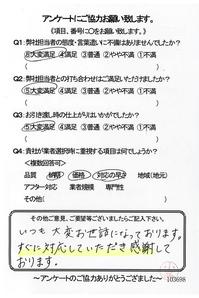 アンケートにご協力お願い致します。
(項目、番号に○をお願い致します。)
Q1: 弊社担当者の態度・言葉遣いに不備はありませんでしたか?
⑤大変満足 ④満足 ③普通 ②やや不満 ①不満
Q2: 弊社担当者との打ち合わせはご満足いただけましたか?
⑤大変満足 ④満足 ③普通 ②やや不満 ①不満
Q3: お引き渡し時の仕上がりはいかがでしたか?
⑤大変満足 ④満足 ③普通 ②やや不満 ①不満
Q4: 貴社が業者選択時に重視する項目は何でしょうか?
<複数回答可>
品質 納期 価格 対応の早さ 地域(地元)
アフター対応 業者規模 専門性
その他( )
その他ご意見、ご要望等ございましたらご記入下さい。
いつも大変お世話になっております。
すぐに対応していただき感謝して
おります。
~アンケートのご協力ありがとうございました~
103698